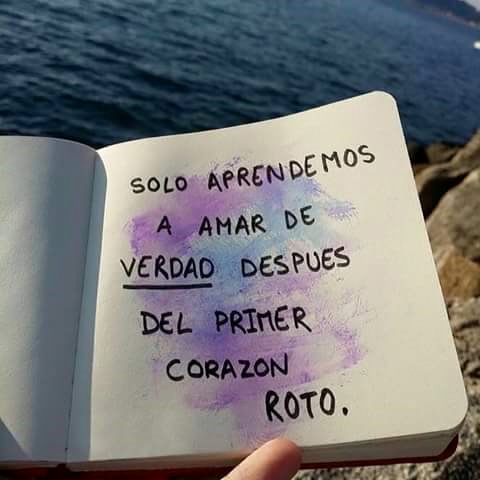 SOLO APRENDEMOS
A AMAR DE
VERDAD DESPUES
DEL PRIMER
CORAZON
ROTO.